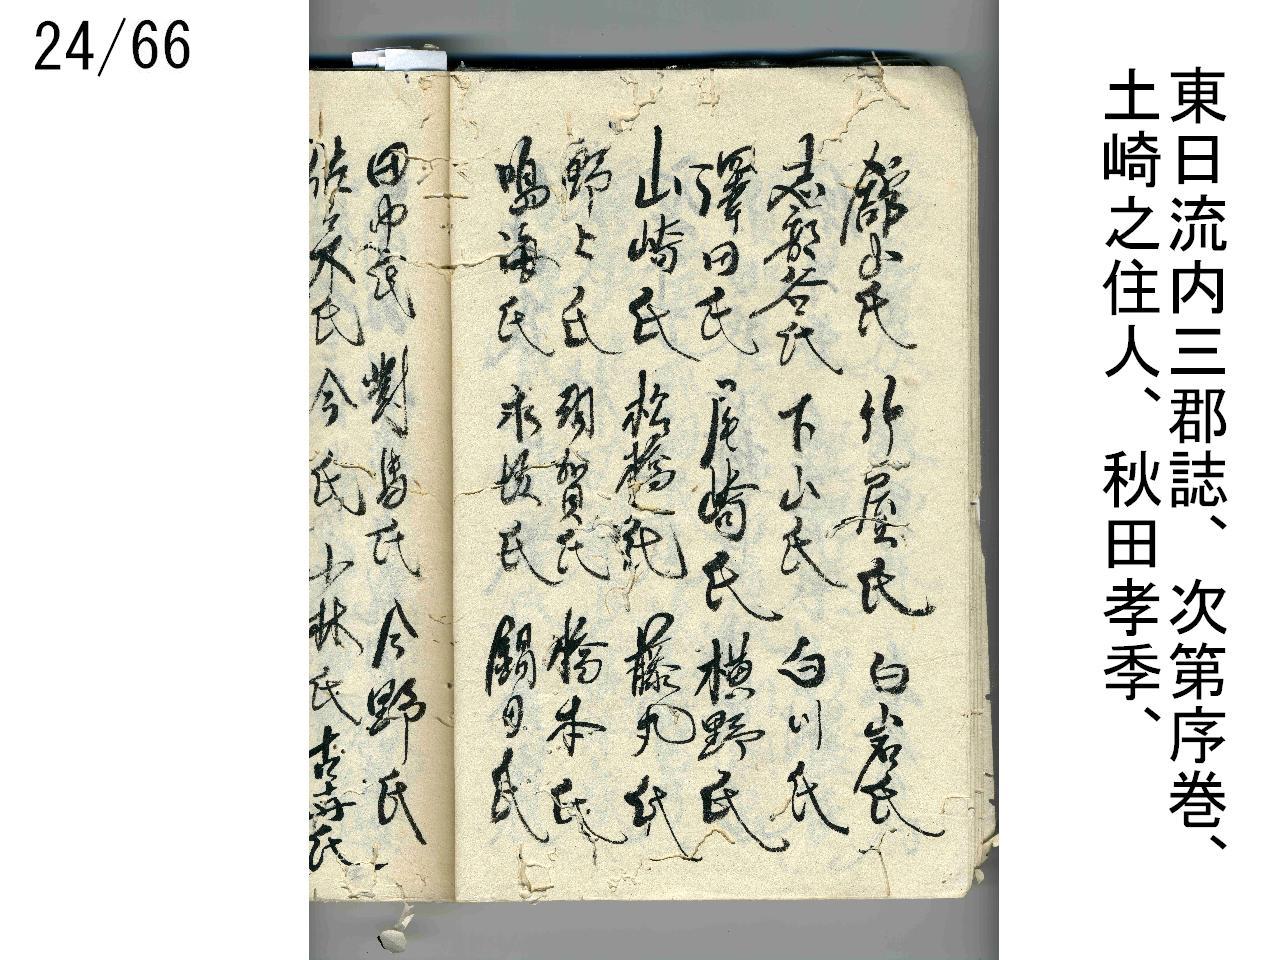 24/66
東日流内三郡誌、次第序巻、
土崎之住人、秋田孝季、
舘山氏 竹屋氏 白岩氏
志部谷氏 下山氏 白川氏
澤田氏 尾崎氏 横野氏
山崎氏 松橋氏 藤丸氏
野上氏 須賀氏 橋本氏
鳴海氏 永坂氏 鍋田氏
田中氏 對馬氏 今野氏
佐々木氏 今氏 小林氏 古寺氏